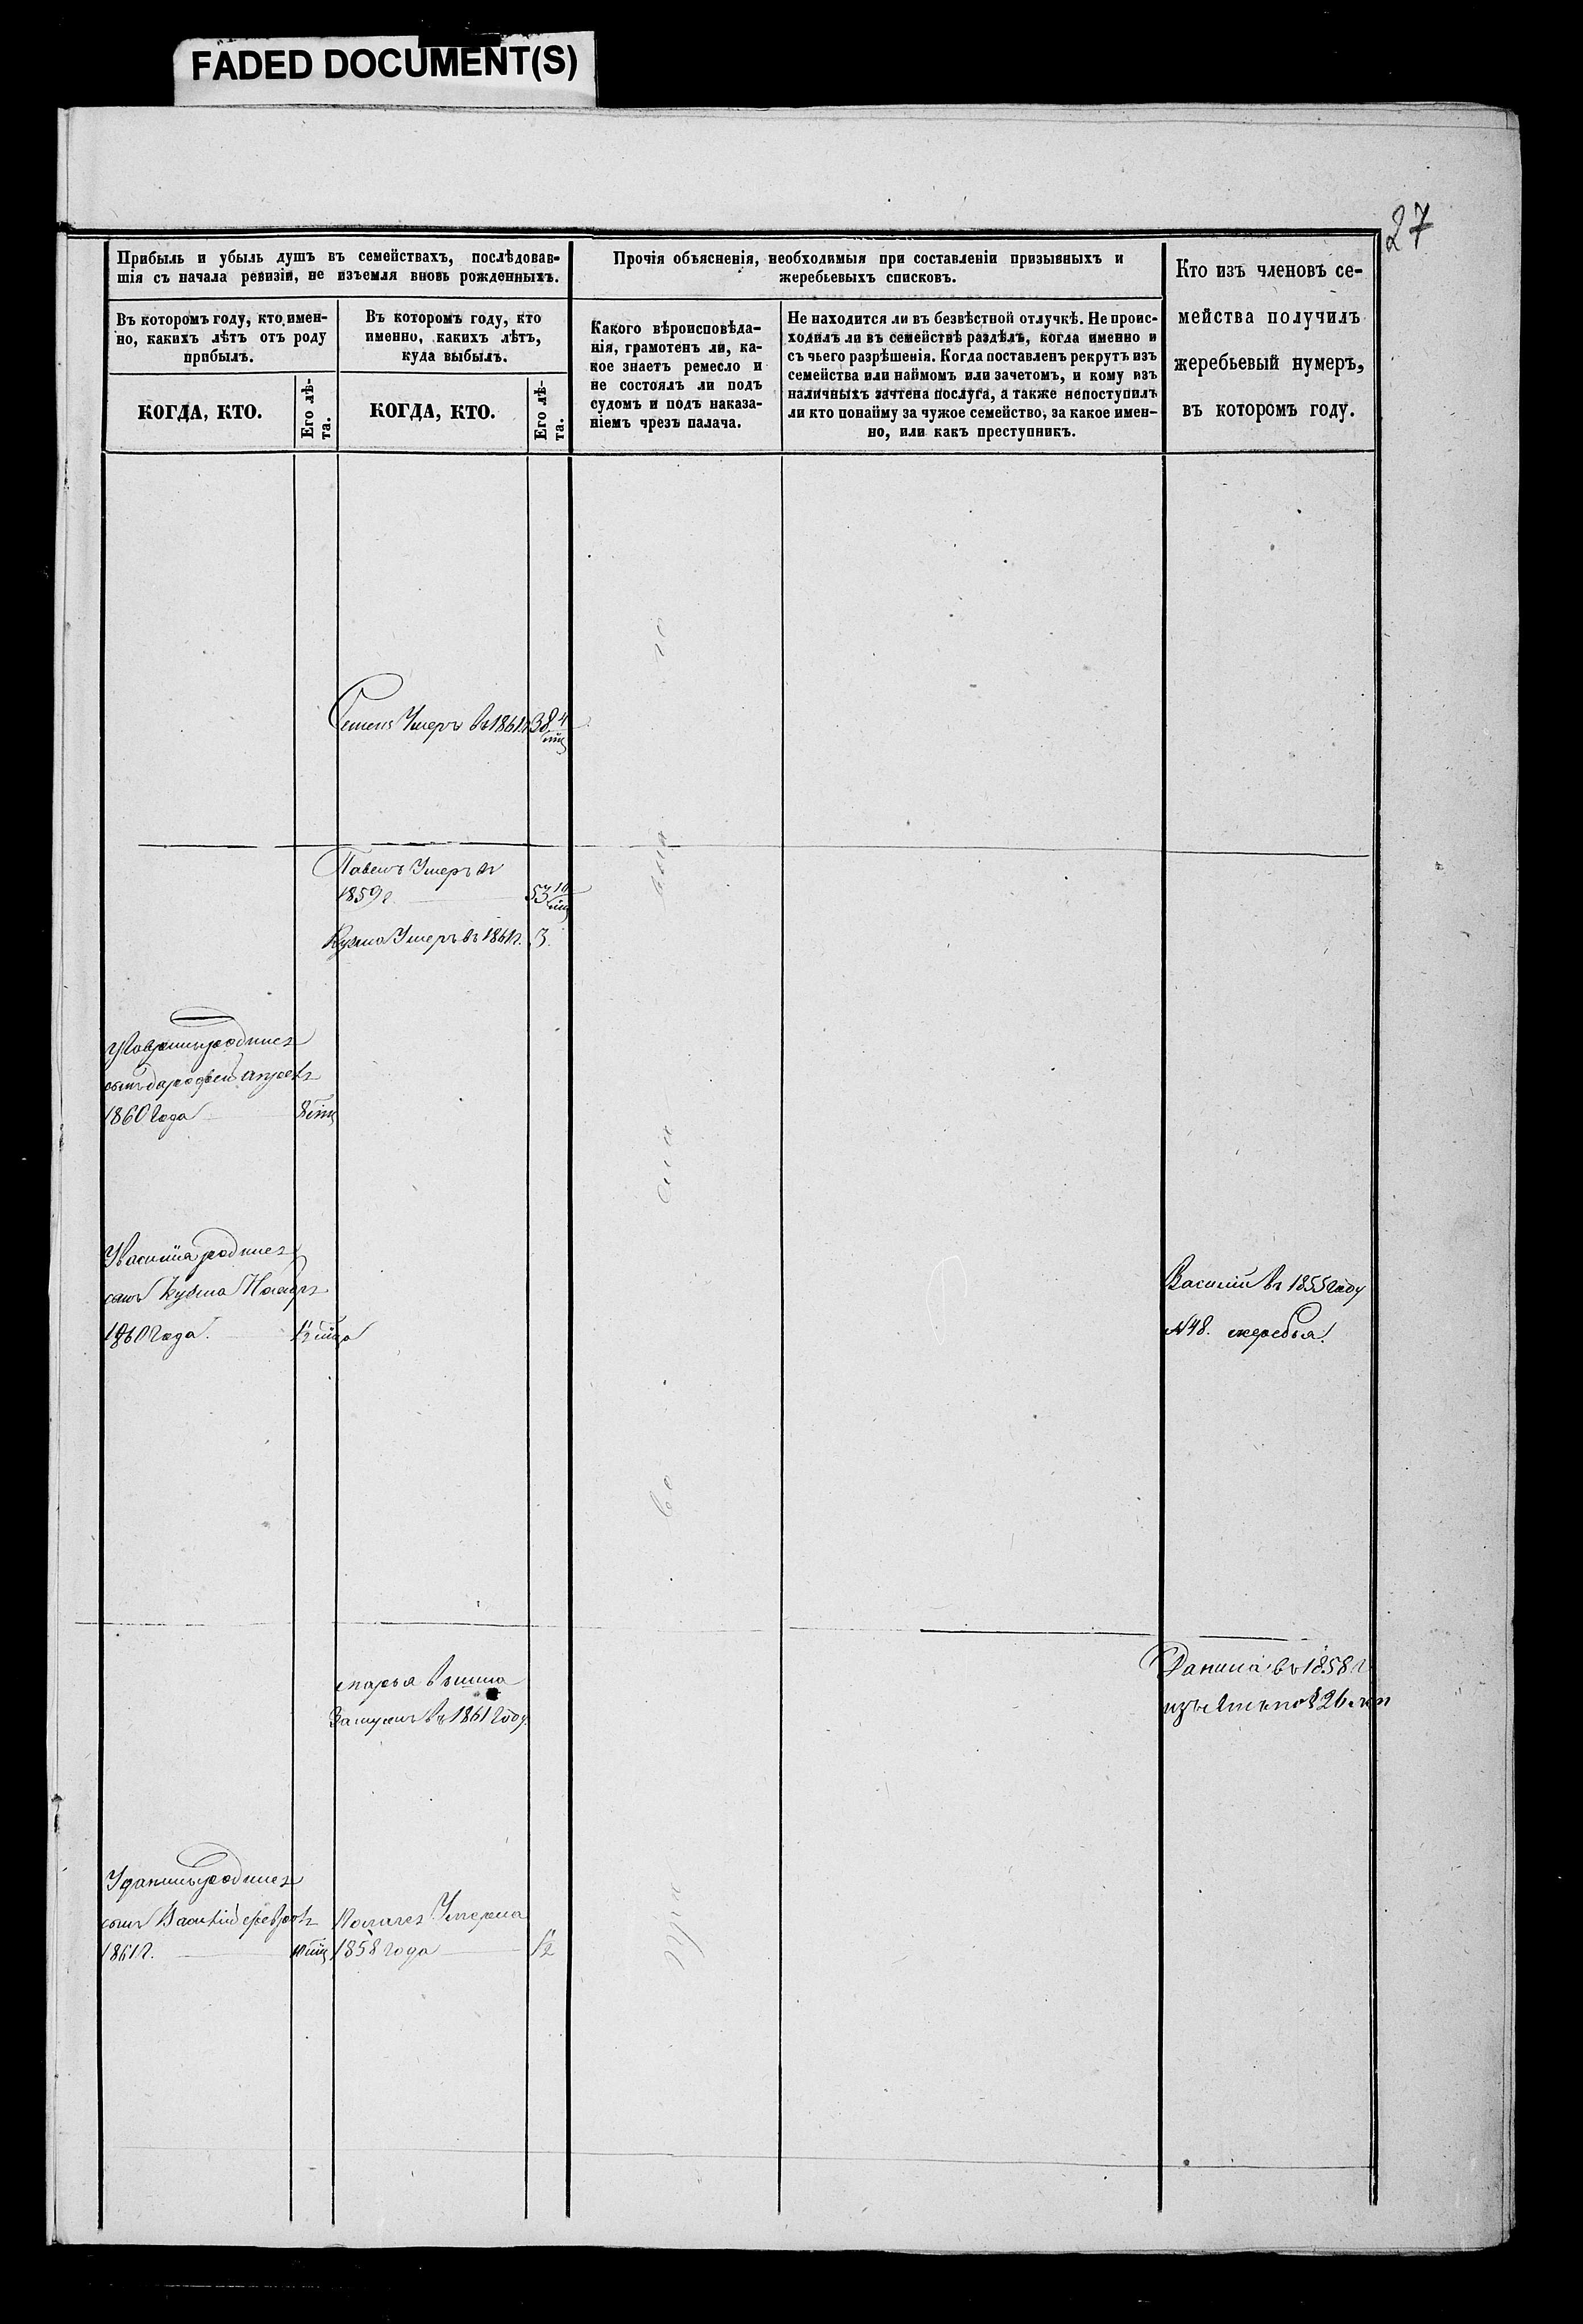 FADED DOCUMENT(S)
27
Прибыль и убыль душъ въ семействахъ, послѣдовав-
шія съ начала ревизіи, не изъемля вновь рожденныхъ.
Въ которомъ году, кто имен-
но, какихъ лѣтъ отъ роду
прибылъ.
КОГДА, КТО.
Его лѣ-
та.
Въ которомъ году, кто
именно, какихъ лѣтъ,
куда выбылъ.
КОГДА, КТО.
Его лѣ-
та.
Прочія объясненія, необходимыя при составленіи призывныхъ и
жеребьевыхъ списковъ.
Какого вѣроисповѣда-
нія, грамотенъ ли, ка-
кое знаетъ ремесло и
не состоялъ ли подъ
судомъ и подъ наказа-
ніемъ чрезъ палача.
Не находится ли въ безвѣстной отлучкѣ. Не проис-
ходилъ ли въ семействѣ раздѣлъ, когда именно и
съ чьего разрѣшенія. Когда поставленъ рекрутъ изъ
семейства или наймомъ или зачетомъ, и кому изъ
наличныхъ зачтена послуга, а также непоступилъ
ли кто понайму за чужое семейство, за какое имен-
но, или какъ преступникъ.
Кто изъ членовъ се-
мейства получилъ
жеребьевый нумеръ,
въ которомъ году.
Семенъ Умеръ въ 1861 г. 38 4
Павелъ Умеръ въ
1859 г. 53 10
Кузма Умеръ въ 1861 г. 3.
родился
сынъ
1860 года 8
У Василія родился
сынъ Кузма Ноября
1860 года.
Василій въ 1855 году
№ 48. жеребья.
Марья вышла
Замужъ въ 1861 году.
Данила въ 1858 г.
У Данилы родился
сынъ Василій
1861 г.
Умерла
1858 года 1/2